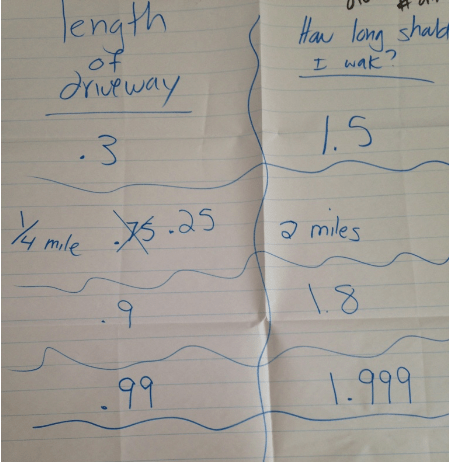 length
of
driveway
.3
1/4 mile .75 .25
.9
.99
How long should
I wak?
1.5
2 miles
1.8
1.999